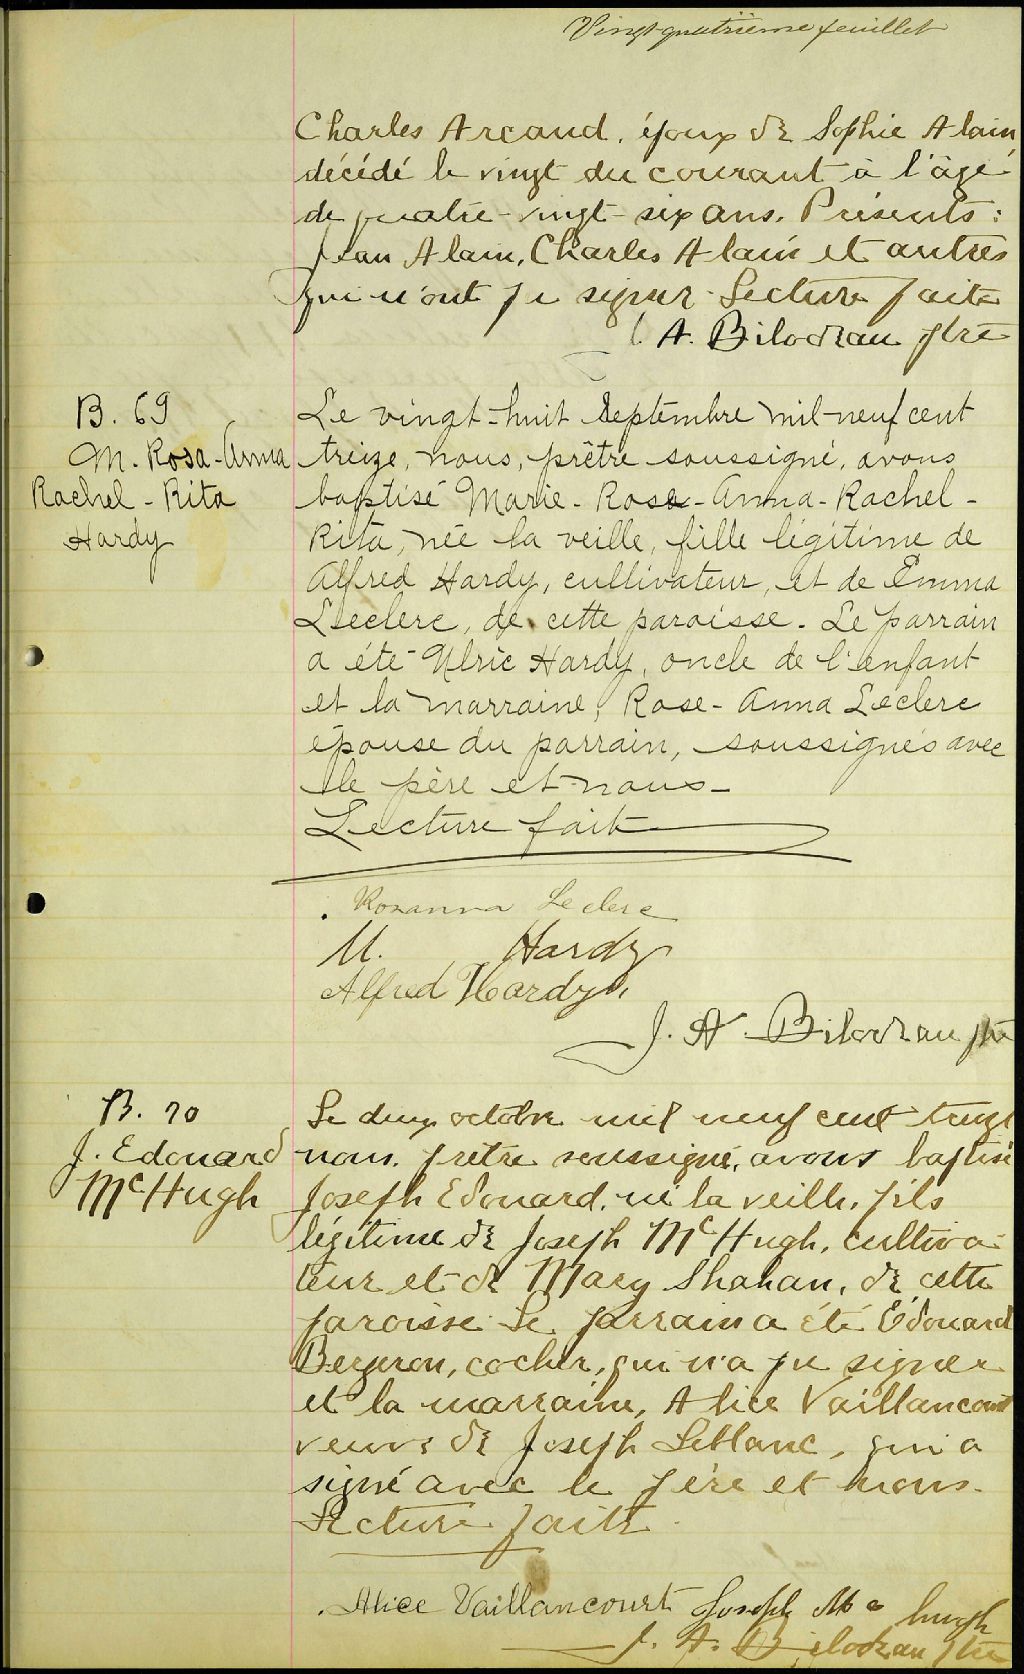 Vingt quatrième feuillet
Charles Arcand, époux de Sophie Alain,
décédé le vingt du courant à l'âge
de quatre-vingt-six ans. Présents:
Jean Alain, Charles Alain et autres
qui n'ont pu signer. Lecture faite
J. A. Bilodeau ptre
B. 69
M. Rosa-Anna
Rachel-Rita
Hardy
Le vingt-huit Septembre mil-neuf cent
treize, nous, prêtre soussigné, avons
baptisé Marie-Rose-Anna-Rachel-
Rita, née la veille, fille légitime de
Alfred Hardy, cultivateur, et de Emma
Leclerc, de cette paroisse. Le parrain
a été Ulric Hardy, oncle de l'enfant
et la marraine, Rose-Anna Leclerc
épouse du parrain, soussignés avec
le père et nous-
Lecture faite
Rosanna Leclerc
U. Hardy
Alfred Hardy
J. A. Bilodeau ptre
B. 70
J. Edouard
McHugh
Le deux octobre mil neuf cent treize
nous, prêtre soussigné, avons baptisé
Joseph Edouard, né la veille, fils
légitime de Joseph McHugh, cultiva-
teur et de Mary Shahan, de cette
paroisse. Le parrain a été Édouard
Bergeron, cocher, qui n'a pu signer
et la marraine, Alice Vaillancourt
veuve de Joseph Leblanc, qui a
signé avec le père et nous.
Lecture faite
Alice Vaillancourt Joseph Mc hugh
J. A. Bilodeau ptre